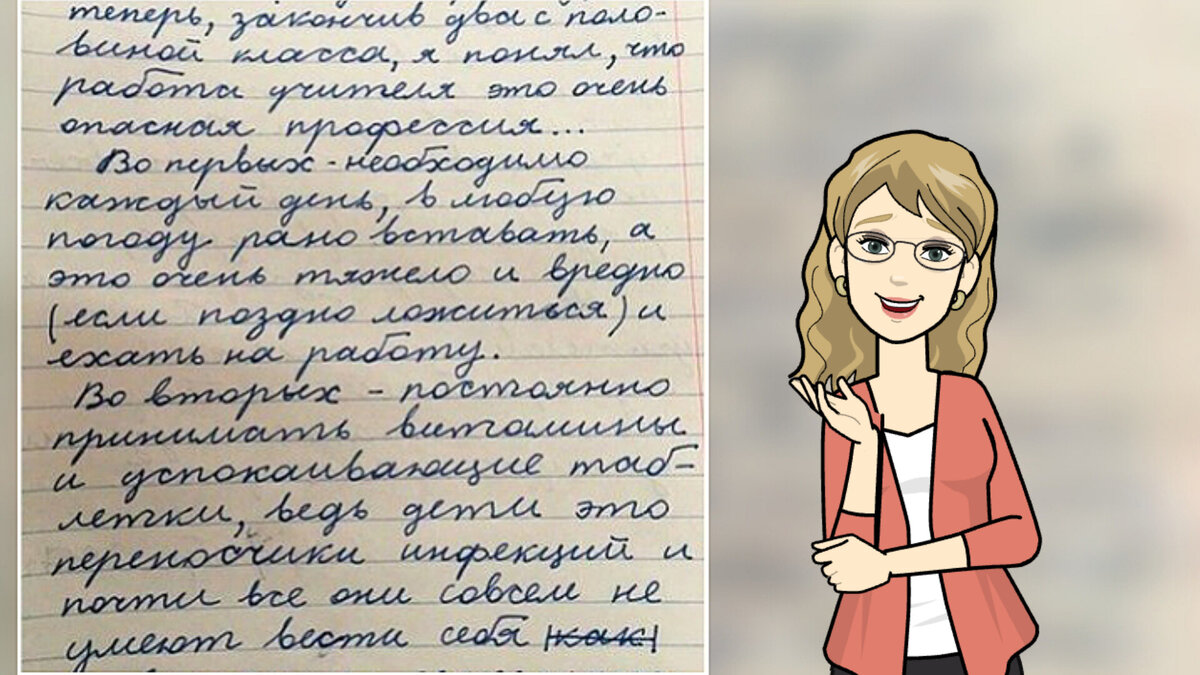 теперь, закончив два с поло-
виной класса, я понял, что
работа учителя это очень
опасная профессия...
Во первых - необходимо
каждый день, в любую
погоду рано вставать, а
это очень тяжело и вредно
(если поздно ложиться) и
ехать на работу.
Во вторых - постоянно
принимать витамины
и успокаивающие таб-
летки, ведь дети это
переносчики инфекций и
почти все они совсем не
умеют вести себя как